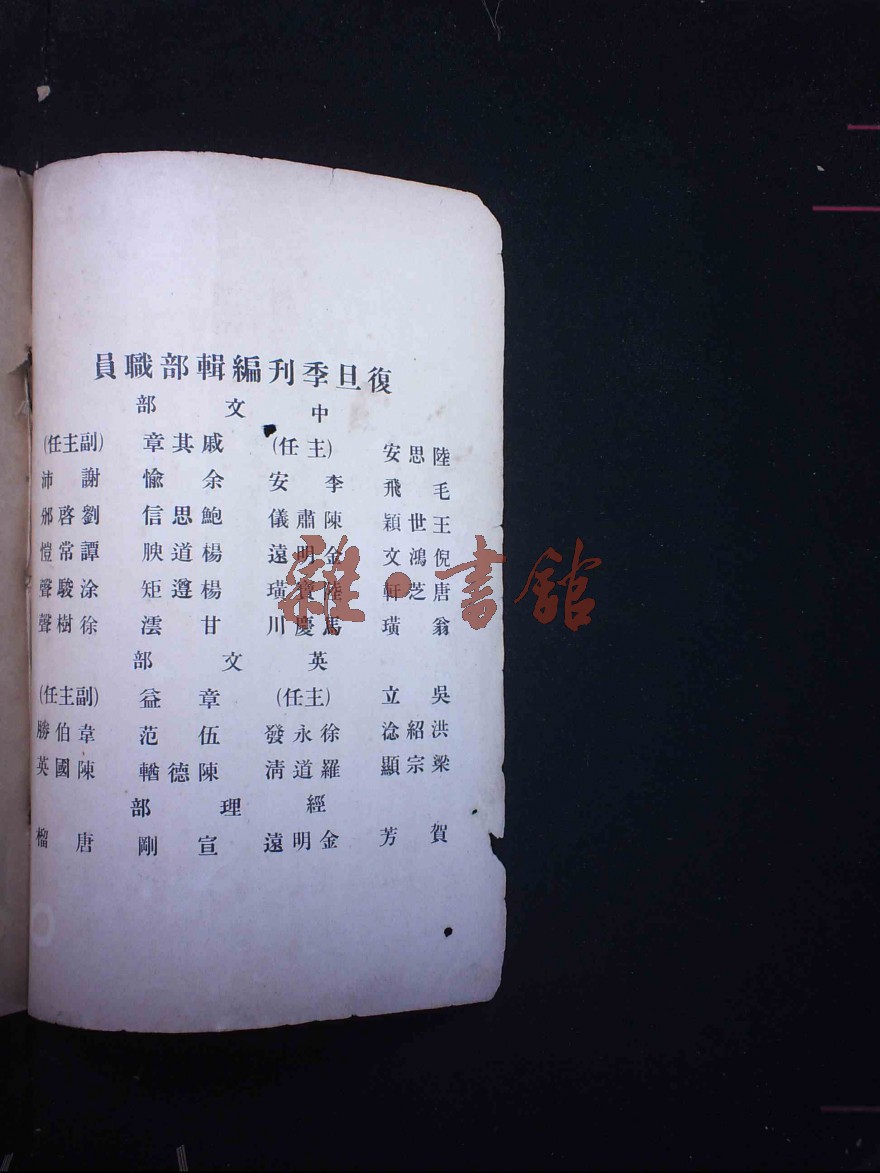 復旦季刊編輯部職員
中文部
陸思安 (主任) 戚其章 (副主任)
毛飛 李安 余愉 謝沛
王世穎 陳肅儀 鮑思信 劉啓邠
倪鴻文 金明遠 楊道腴 譚常愷
唐芝軒 陸寶璜 楊遵矩 涂駿聲
翁璜 馬慶川 甘澐 徐樹聲
英文部
吳立 (主任) 章益 (副主任)
洪紹淰 徐永發 伍范 韋伯勝
梁宗顯 羅道清 陳德輶 陳國英
經理部
賀芳 金明遠 宣剛 唐榴
雜·書館